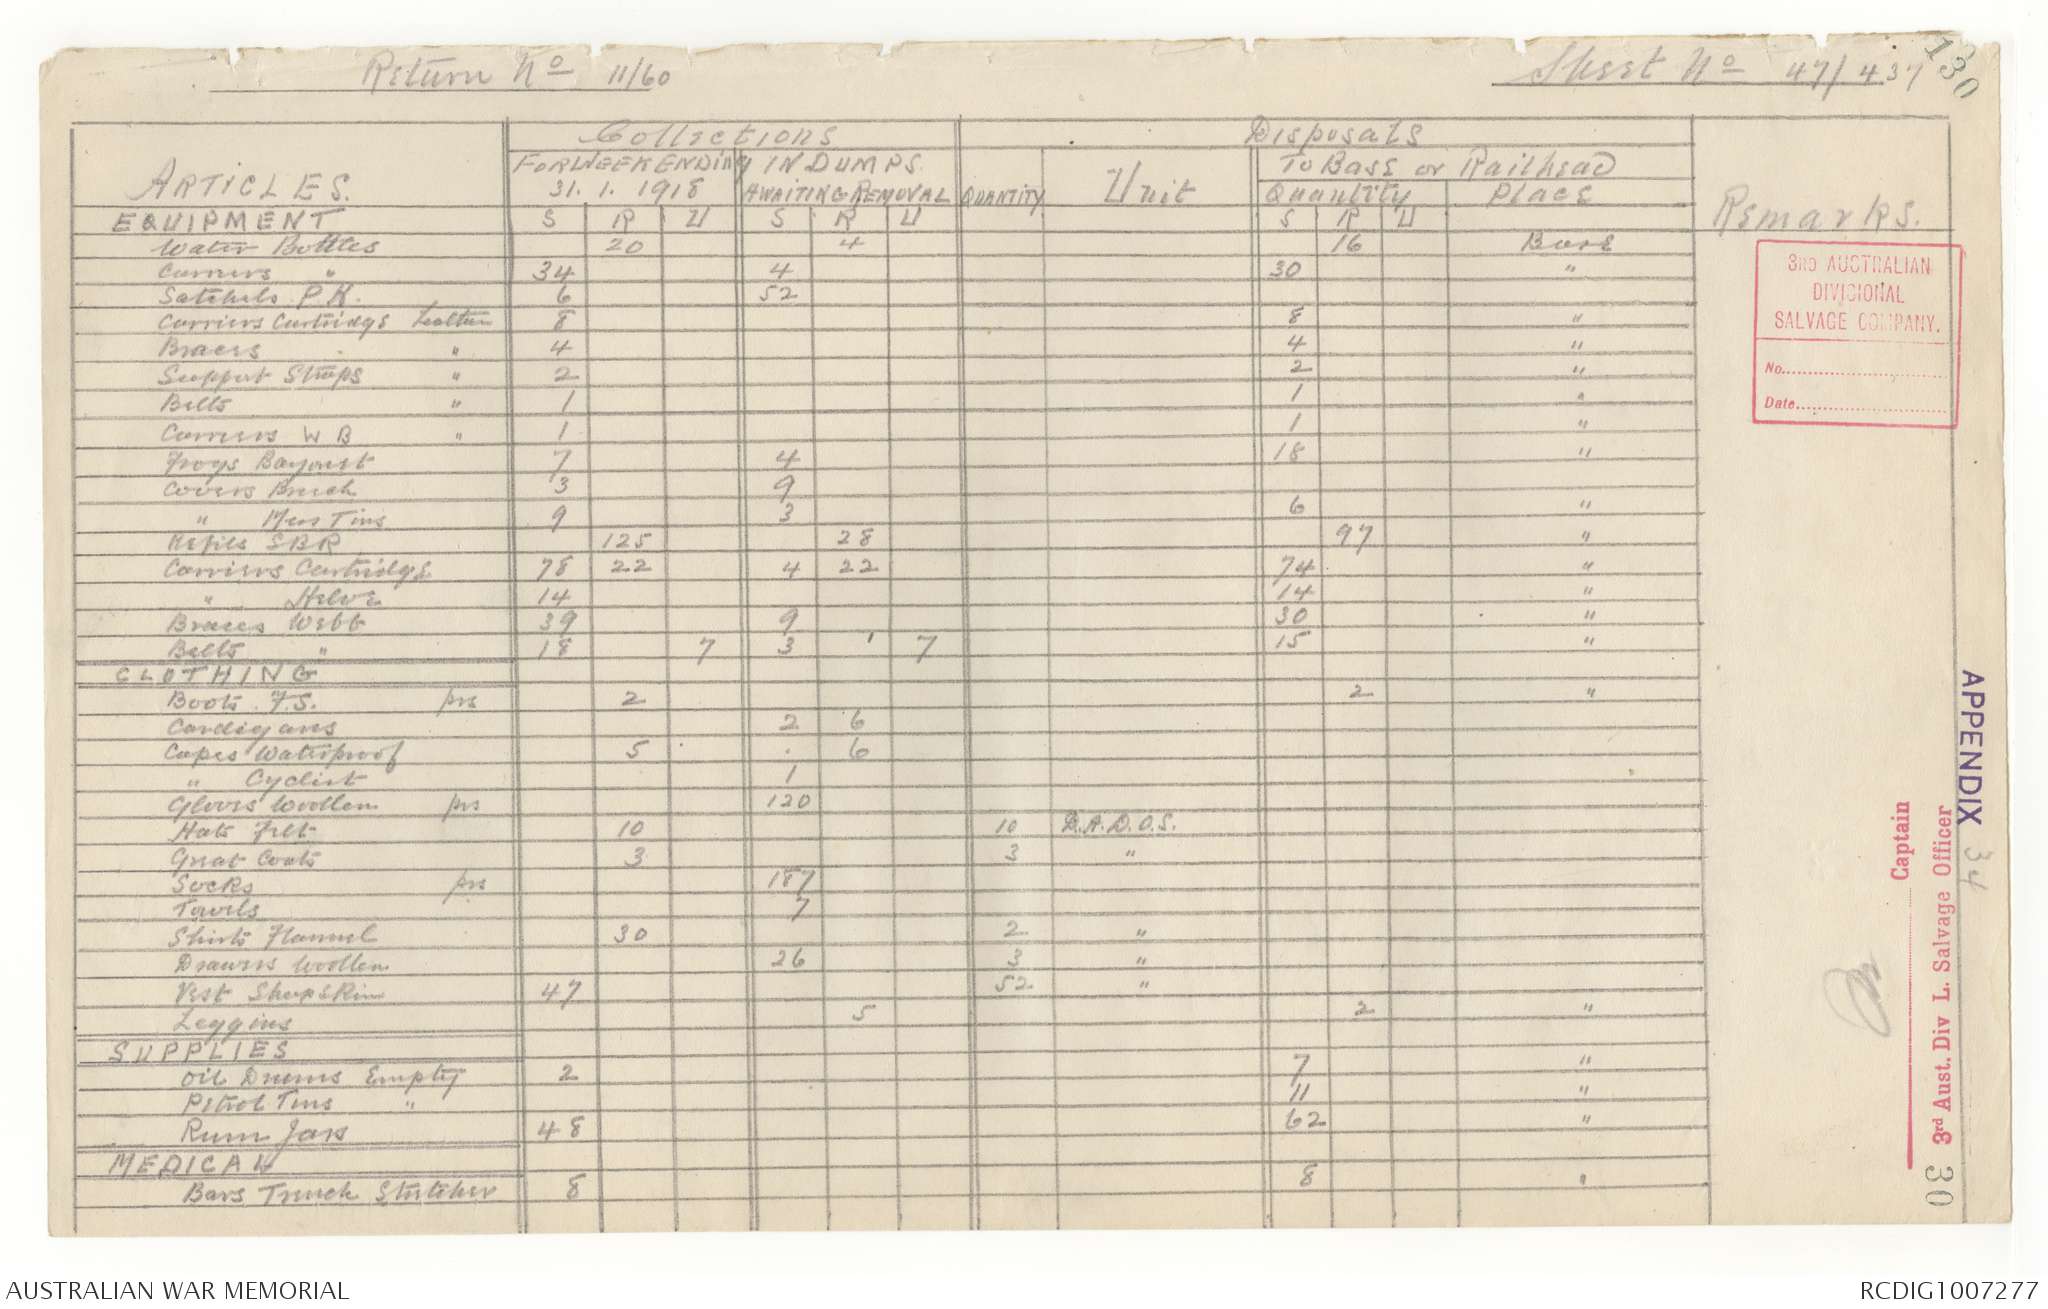 Return No 11/60
Sheet No 47/437
130
Collections
Disposals
ARTICLES.
FOR WEEK ENDING 31.1.1918
IN DUMPS AWAITING REMOVAL
QUANTITY
Unit
To Base or Railhead
Quantity
Place
Remarks.
EQUIPMENT S R U S R U S R U
Water Bottles 20 4 16 Base
Carriers " 34 4 30 "
Satchels P.H. 6 52
Carriers Cartridge Leather 8 8 "
Braces " 4 4 "
Support Straps " 2 2 "
Belts " 1 1 "
Carriers W B " 1 1 "
Frogs Bayonet 7 4 18 "
Covers Breech 3 9
" Mess Tins 9 3 6 "
Refills SBR 125 28 97 "
Carriers Cartridge 78 22 4 22 74 "
" Helve 14 14 "
Braces Webb 39 9 30 "
Belts " 18 7 3 7 15 "
CLOTHING
Boots F.S. prs 2 2 "
Cardigans 2 6
Capes Waterproof 5 6
" Cyclist 1
Gloves Woollen prs 120
Hats Felt 10 10 D.A.D.O.S.
Great Coats 3 3 "
Socks prs 187
Towels 7
Shirts Flannel 30 2 "
Drawers Woollen 26 3 "
Vest Sheepskin 47 52 "
Leggins 5 2 "
SUPPLIES
Oil Drums Empty 2 7 "
Petrol Tins " 11 "
Rum Jars 48 62 "
MEDICAL
Bars Truck Stretcher 8 8 "
3RD AUSTRALIAN
DIVISIONAL
SALVAGE COMPANY.
No.
Date
APPENDIX 34
Captain
3rd Aust. Div L. Salvage Officer
30
AUSTRALIAN WAR MEMORIAL
RCDIG1007277